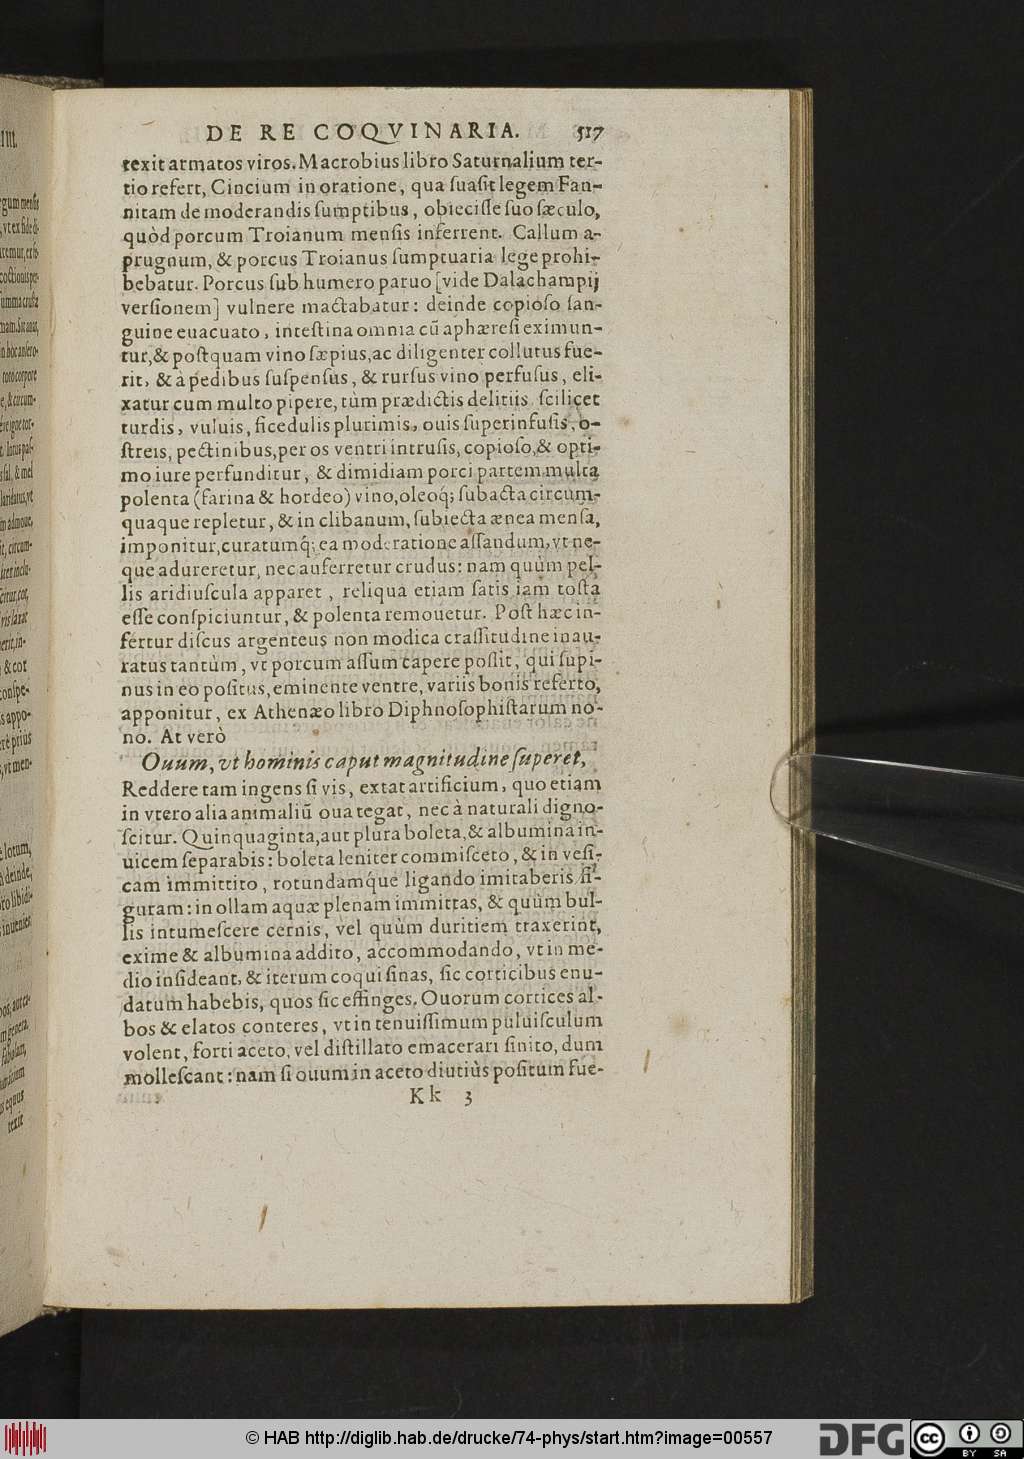 DE RE COQVINARIA. 517
texit armatos viros. Macrobius libro Saturnalium ter-
tio refert, Cincium in oratione, qua suasit legem Fan-
nitam de moderandis sumptibus, obiecisse suo sæculo,
quòd porcum Troianum mensis inferrent. Callum a-
prugnum, & porcus Troianus sumptuaria lege prohi-
bebatur. Porcus sub humero paruo [vide Dalachampij
versionem] vulnere mactabatur: deinde copioso san-
guine euacuato, intestina omnia cū aphæresi eximun-
tur, & postquam vino sæpius, ac diligenter collutus fue-
rit, & à pedibus suspensus, & rursus vino perfusus, eli-
xatur cum multo pipere, tùm prædictis delitiis scilicet
turdis, vuluis, ficedulis plurimis, ouis superinfusis, o-
streis, pectinibus, per os ventri intrusis, copioso, & opti-
mo iure perfunditur, & dimidiam porci partem multa
polenta (farina & hordeo) vino, oleoq; subacta circum-
quaque repletur, & in clibanum, subiecta ænea mensa,
imponitur, curatumq́; ea moderatione assandum, vt ne-
que adureretur, nec auferretur crudus: nam quùm pel-
lis aridiuscula apparet, reliqua etiam satis iam tosta
esse conspiciuntur, & polenta remouetur. Post hæc in-
fertur discus argenteus non modica crassitudine inau-
ratus tantùm, vt porcum assum capere possit, qui supi-
nus in eo positus, eminente ventre, variis bonis referto,
apponitur, ex Athenæo libro Diphnosophistarum no-
no. At verò
Ouum, vt hominis caput magnitudine superet,
Reddere tam ingens si vis, extat artificium, quo etiam
in vtero alia animaliū oua tegat, nec à naturali digno-
scitur. Quinquaginta, aut plura boleta, & albumina in-
uicem separabis: boleta leniter commisceto, & in vesi-
cam immittito, rotundamq́ue ligando imitaberis fi-
guram: in ollam aquæ plenam immittas, & quùm bul-
lis intumescere cernis, vel quùm duritiem traxerint,
exime & albumina addito, accommodando, vt in me-
dio insideant, & iterum coqui sinas, sic corticibus enu-
datum habebis, quos sic effinges. Ouorum cortices al-
bos & elatos conteres, vt in tenuissimum puluisculum
volent, forti aceto, vel distillato emacerari sinito, dum
mollescant: nam si ouum in aceto diutiùs positum fue-
Kk 3
© HAB http://diglib.hab.de/drucke/74-phys/start.htm?image=00557
DFG
cc BY SA